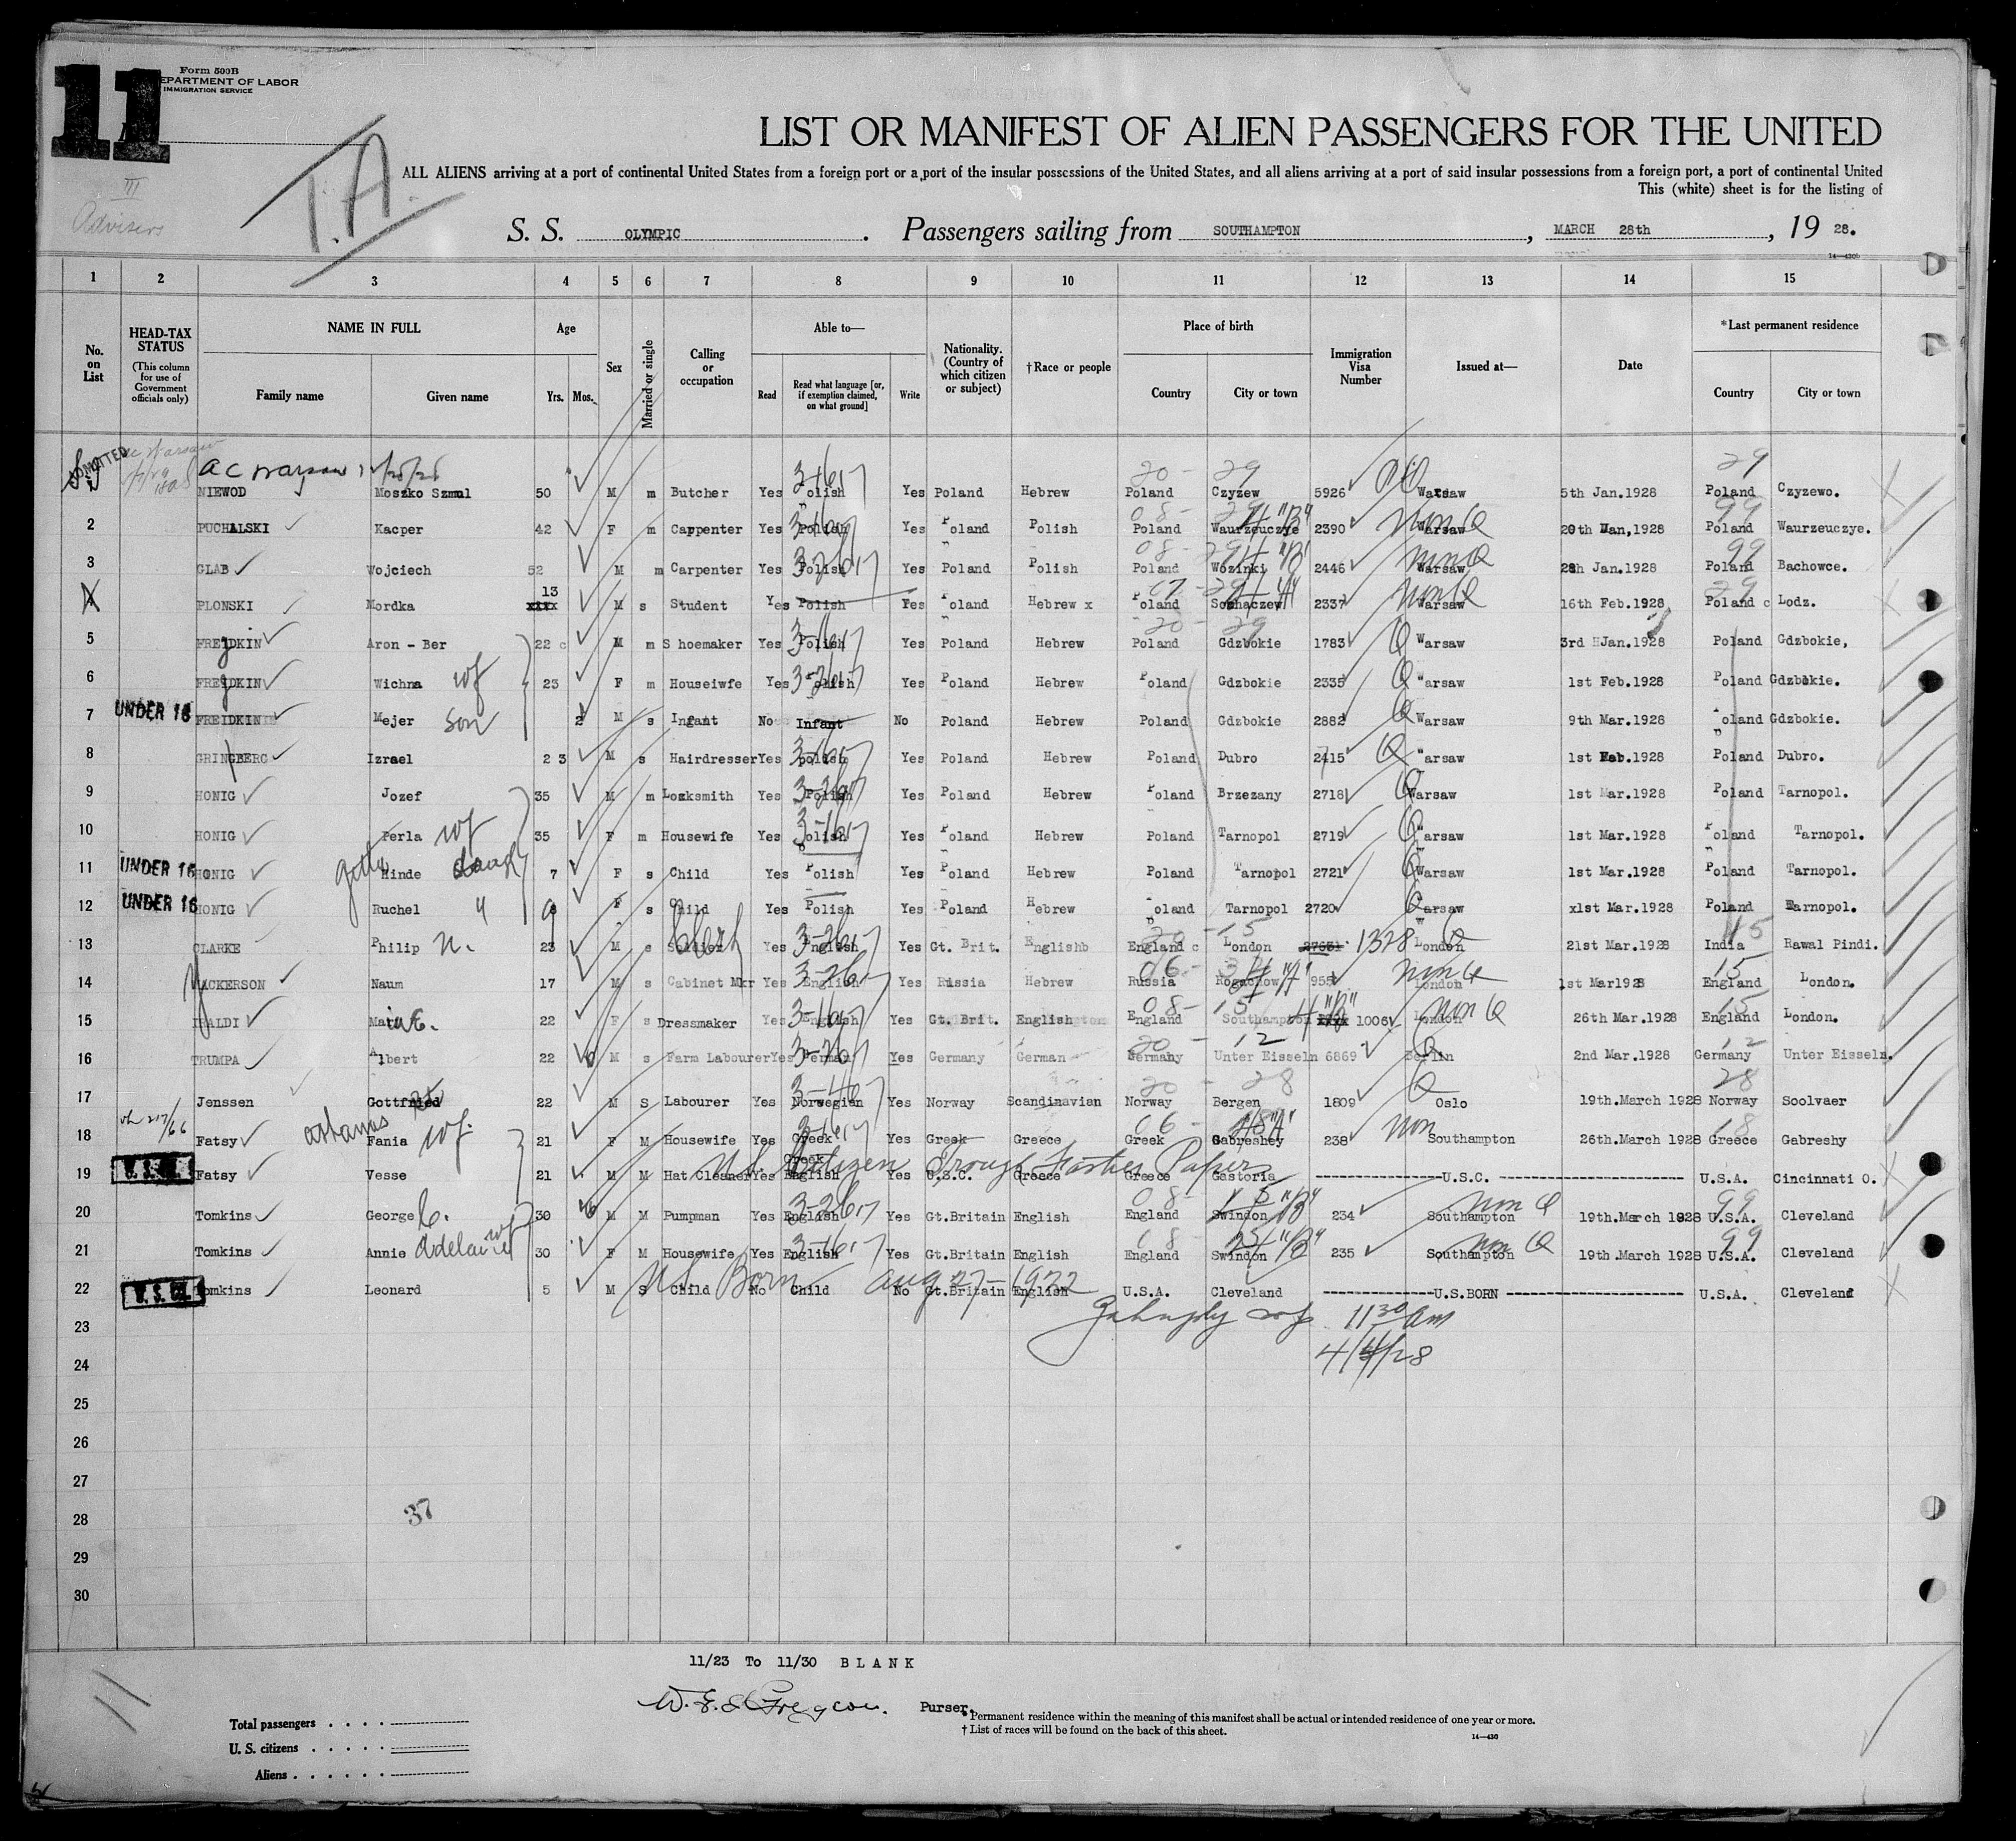 11
Form 500B
DEPARTMENT OF LABOR
IMMIGRATION SERVICE
III
Advisers
T.A.
LIST OR MANIFEST OF ALIEN PASSENGERS FOR THE UNITED
ALL ALIENS arriving at a port of continental United States from a foreign port or a port of the insular possessions of the United States, and all aliens arriving at a port of said insular possessions from a foreign port, a port of continental United
This (white) sheet is for the listing of
S. S. OLYMPIC. Passengers sailing from SOUTHAMPTON, MARCH 28th, 19 28.
14—430b
1 2 3 4 5 6 7 8 9 10 11 12 13 14 15
No. on List HEAD-TAX STATUS (This column for use of Government officials only) NAME IN FULL Family name Given name Age Yrs. Mos. Sex Married or single Calling or occupation Able to— Read Read what language [or, if exemption claimed, on what ground] Write Nationality. (Country of which citizen or subject) †Race or people Place of birth Country City or town Immigration Visa Number Issued at— Date *Last permanent residence Country City or town
ADMITTED ac Warsaw 20- 29 29
NIEWOD Moszko Szmul 50 M m Butcher Yes Polish Yes Poland Hebrew Poland Czyzew 5926 Warsaw 5th Jan.1928 Poland Czyzewo.
2 PUCHALSKI Kacper 42 F m Carpenter Yes Polish Yes Poland Polish Poland Waurzeuczye 2390 Non Q Warsaw 20th Jan,1928 Poland Waurzeuczye.
3 GLAB Wojciech 52 M m Carpenter Yes Polish Yes Poland Polish Poland Wozinki 2446 Non Q Warsaw 28h Jan.1928 Poland Bachowce.
PLONSKI Mordka 13 M s Student Yes Polish Yes Poland Hebrew x Poland Sochaczew 2337 Non Q Warsaw 16th Feb.1928 Poland c Lodz.
5 FREJDKIN Aron - Ber 22 c M m S hoemaker Yes Polish Yes Poland Hebrew Poland Gdzbokie 1783 Q Warsaw 3rd Jan.1928 Poland Gdzbokie,
6 FREJDKIN Wichna wf 23 F m Houseiwfe Yes Polish Yes Poland Hebrew Poland Gdzbokie 2335 Q Warsaw 1st Feb.1928 Poland Gdzbokie.
7 UNDER 16 FREIDKIN Mejer son 2 M s Infant No Infant No Poland Hebrew Poland Gdzbokie 2882 Q Warsaw 9th Mar.1928 Poland Gdzbokie.
8 GRINGBERG Izrael 2 3 M s Hairdresser Yes Polish Yes Poland Hebrew Poland Dubro 2415 Q Warsaw 1st Feb.1928 Poland Dubro.
9 HONIG Jozef 35 M m Locksmith Yes Polish Yes Poland Hebrew Poland Brzezany 2718 Q Warsaw 1st Mar.1928 Poland Tarnopol.
10 HONIG Perla wf 35 F m Housewife Yes Polish Yes Poland Hebrew Poland Tarnopol 2719 Q Warsaw 1st Mar.1928 Poland Tarnopol.
11 UNDER 16 HONIG Hinde daug 7 F s Child Yes Polish Yes Poland Hebrew Poland Tarnopol 2721 Q Warsaw 1st Mar.1928 Poland Tarnopol.
12 UNDER 16 HONIG Ruchel " F s Child Yes Polish Yes Poland Hebrew Poland Tarnopol 2720 Q Warsaw x1st Mar.1928 Poland Tarnopol.
13 CLARKE Philip N. 23 M s Soldier Clerk Yes English Yes Gt. Brit. Englishb England c London 1328 London Q 21st Mar.1928 India Rawal Pindi.
14 MACKERSON Naum 17 M s Cabinet Mkr Yes English Yes Russia Hebrew Russia Rogachow 955 Non Q London 1st Mar1928 England London.
15 IRALDI E. 22 F s Dressmaker Yes English Yes Gt. Brit. English England Southampton 1006 Non Q London 26th Mar.1928 England London.
16 TRUMPA Albert 22 M s Farm Labourer Yes German Yes Germany German Germany Unter Eisseln 6869 Q Berlin 2nd Mar.1928 Germany Unter Eisseln.
17 Jenssen Gottfried 22 M S Labourer Yes Norwegian Yes Norway Scandinavian Norway Bergen 1809 Q Oslo 19th.March 1928 Norway Soolvaer
18 Fatsy Fania wf. 21 F M Housewife Yes Greek Yes Greek Greece Greek Gabreshey 238 Non Southampton 26th.March 1928 Greece Gabreshy
U.S. Citizen Trough Father Paper
19 Fatsy Vesse 21 M M Hat Cleaner Yes Greek English Yes U.S.C. Greece Greece Gastoria U.S.C. U.S.A. Cincinnati O.
20 Tomkins George C. 30 M M Pumpman Yes English Yes Gt.Britain English England Swindon 234 Non Q Southampton 19th.March 1928 U.S.A. Cleveland
21 Tomkins Annie Adelaide wf 30 F M Housewife Yes English Yes Gt.Britain English England Swindon 235 Non Q Southampton 19th.March 1928 U.S.A. Cleveland
U.S. Born Aug 27-1922
22 Tomkins Leonard 5 M S Child No Child No Gt.Britain English U.S.A. Cleveland U.S.BORN U.S.A. Cleveland
23 11 30 am
24 4/4/28
25
26
27
28 37
29
30
11/23 To 11/30 B L A N K
Purser.
*Permanent residence within the meaning of this manifest shall be actual or intended residence of one year or more.
† List of races will be found on the back of this sheet.
14—430
Total passengers
U. S. citizens
Aliens